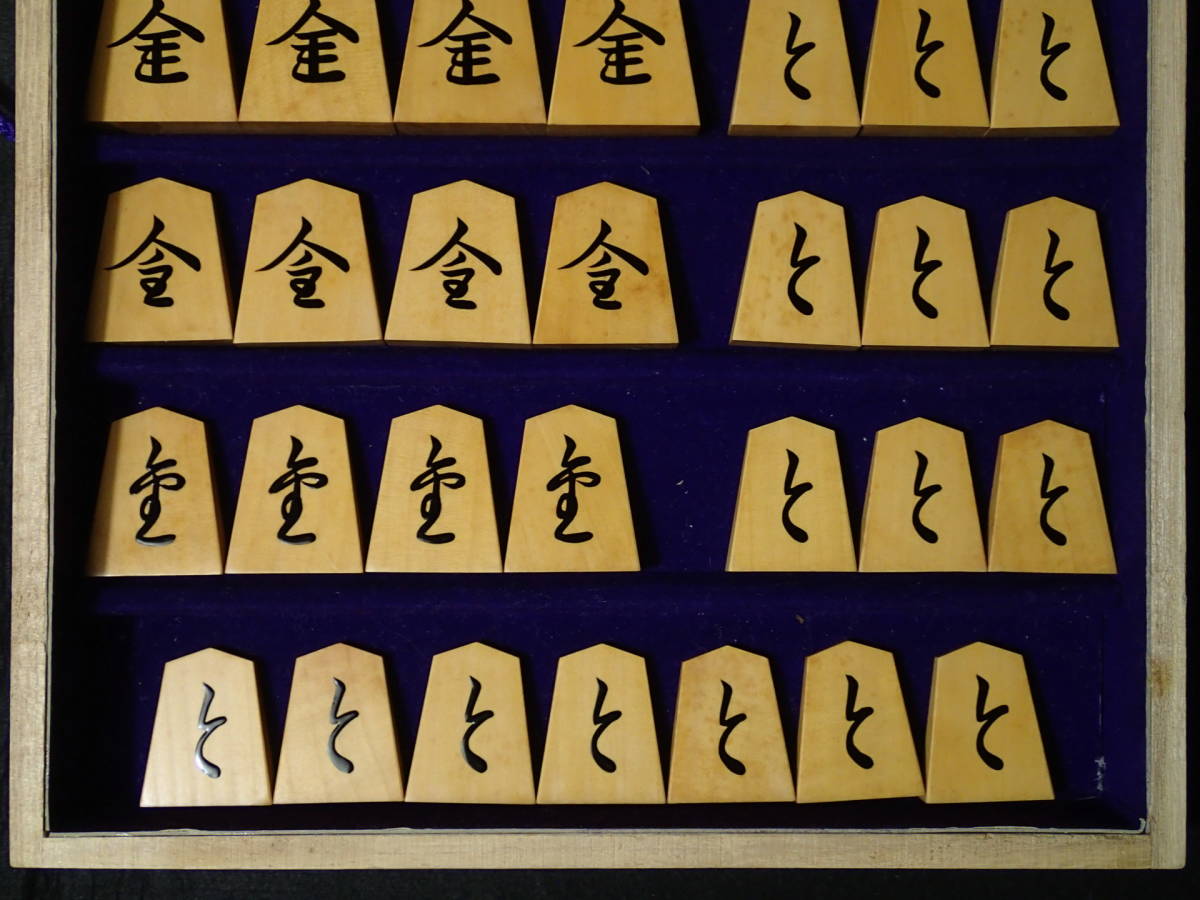 金 金 金 金 と と と
金 金 金 金 と と と
金 金 金 金 と と と
と と と と と と と